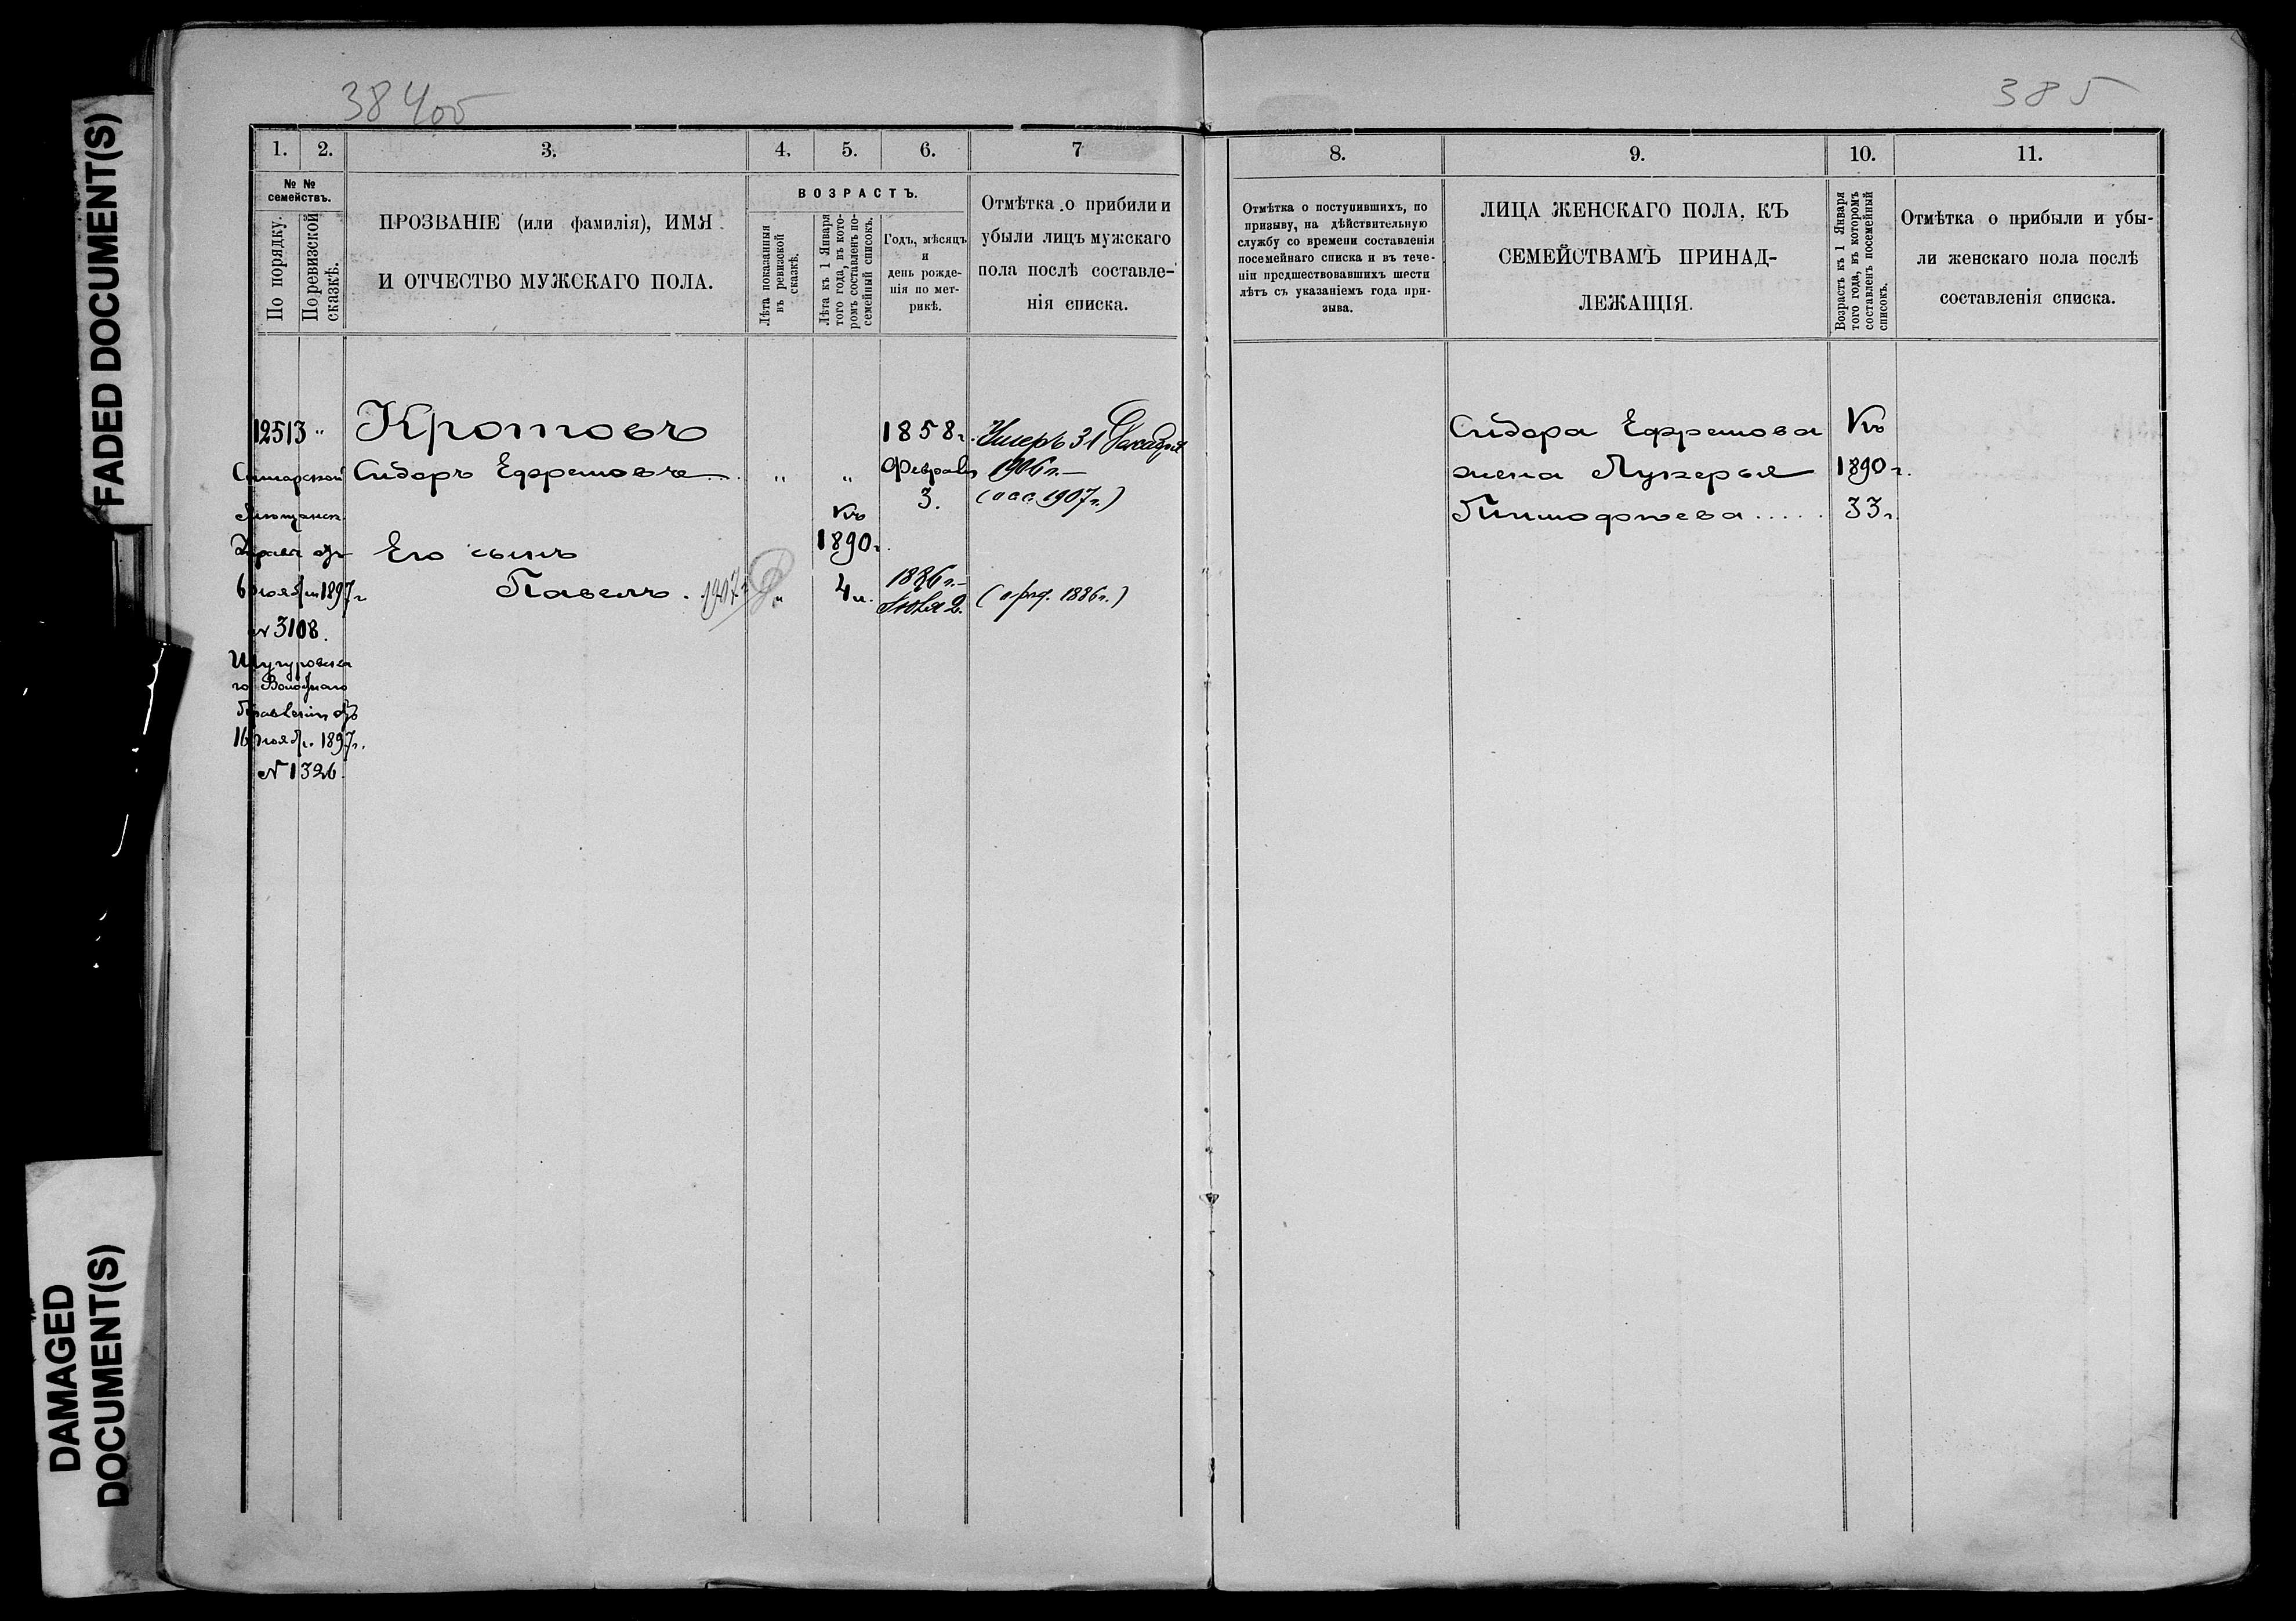 FADED DOCUMENT(S)
DAMAGED
DOCUMENT(S)
384об
1. 2. 3. 4. 5. 6. 7
№ №
семействъ.
По порядку.
По ревизской
сказкѣ.
ПРОЗВАНІЕ (или фамилія), ИМЯ
И ОТЧЕСТВО МУЖСКАГО ПОЛА.
ВОЗРАСТЪ.
Лѣта показанныя
въ ревизской
сказкѣ.
Лѣта къ 1 Января
того года, въ кото-
ромъ составленъ по-
семейный списокъ.
Годъ, мѣсяцъ
и
день рожде-
нія по мет-
рикѣ.
Отмѣтка о прибыли и
убыли лицъ мужскаго
пола послѣ составле-
нія списка.
12513 "
Самарской
Управы отъ
6 ноября 1897 г
№ 3108.
Шугуровска
го Волостнаго
Правленія отъ
16 ноября 1897 г.
№ 1326.
Кротовъ
Сидоръ Ефремовъ
" "
1858 г.
Февраля
3.
Умеръ 31 Декабря
1906 г.
1907 г.)
Его сынъ
Павелъ. 1907 г
"
Къ
1890 г.
4 г.
1886 г.
2.
1886 г.)
385
8. 9. 10. 11.
Отмѣтка о поступившихъ, по
призыву, на дѣйствительную
службу со времени составленія
посемейнаго списка и въ тече-
ніи предшествовавшихъ шести
лѣтъ съ указаніемъ года при-
зыва.
ЛИЦА ЖЕНСКАГО ПОЛА, КЪ
СЕМЕЙСТВАМЪ ПРИНАД-
ЛЕЖАЩІЯ.
Возрастъ къ 1 Января
того года, въ которомъ
составленъ посемейный
списокъ.
Отмѣтка о прибыли и убы-
ли женскаго пола послѣ
составленія списка.
Сидора Ефремова
жена Лукерья
Тимофѣева.....
Къ
1890 г.
33 г.